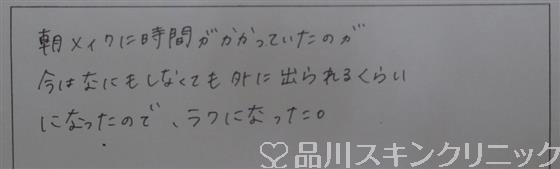 朝メイクに時間がかかっていたのが
今はなにもしなくても外に出られるくらい
になったので、ラクになった。
品川スキンクリニック